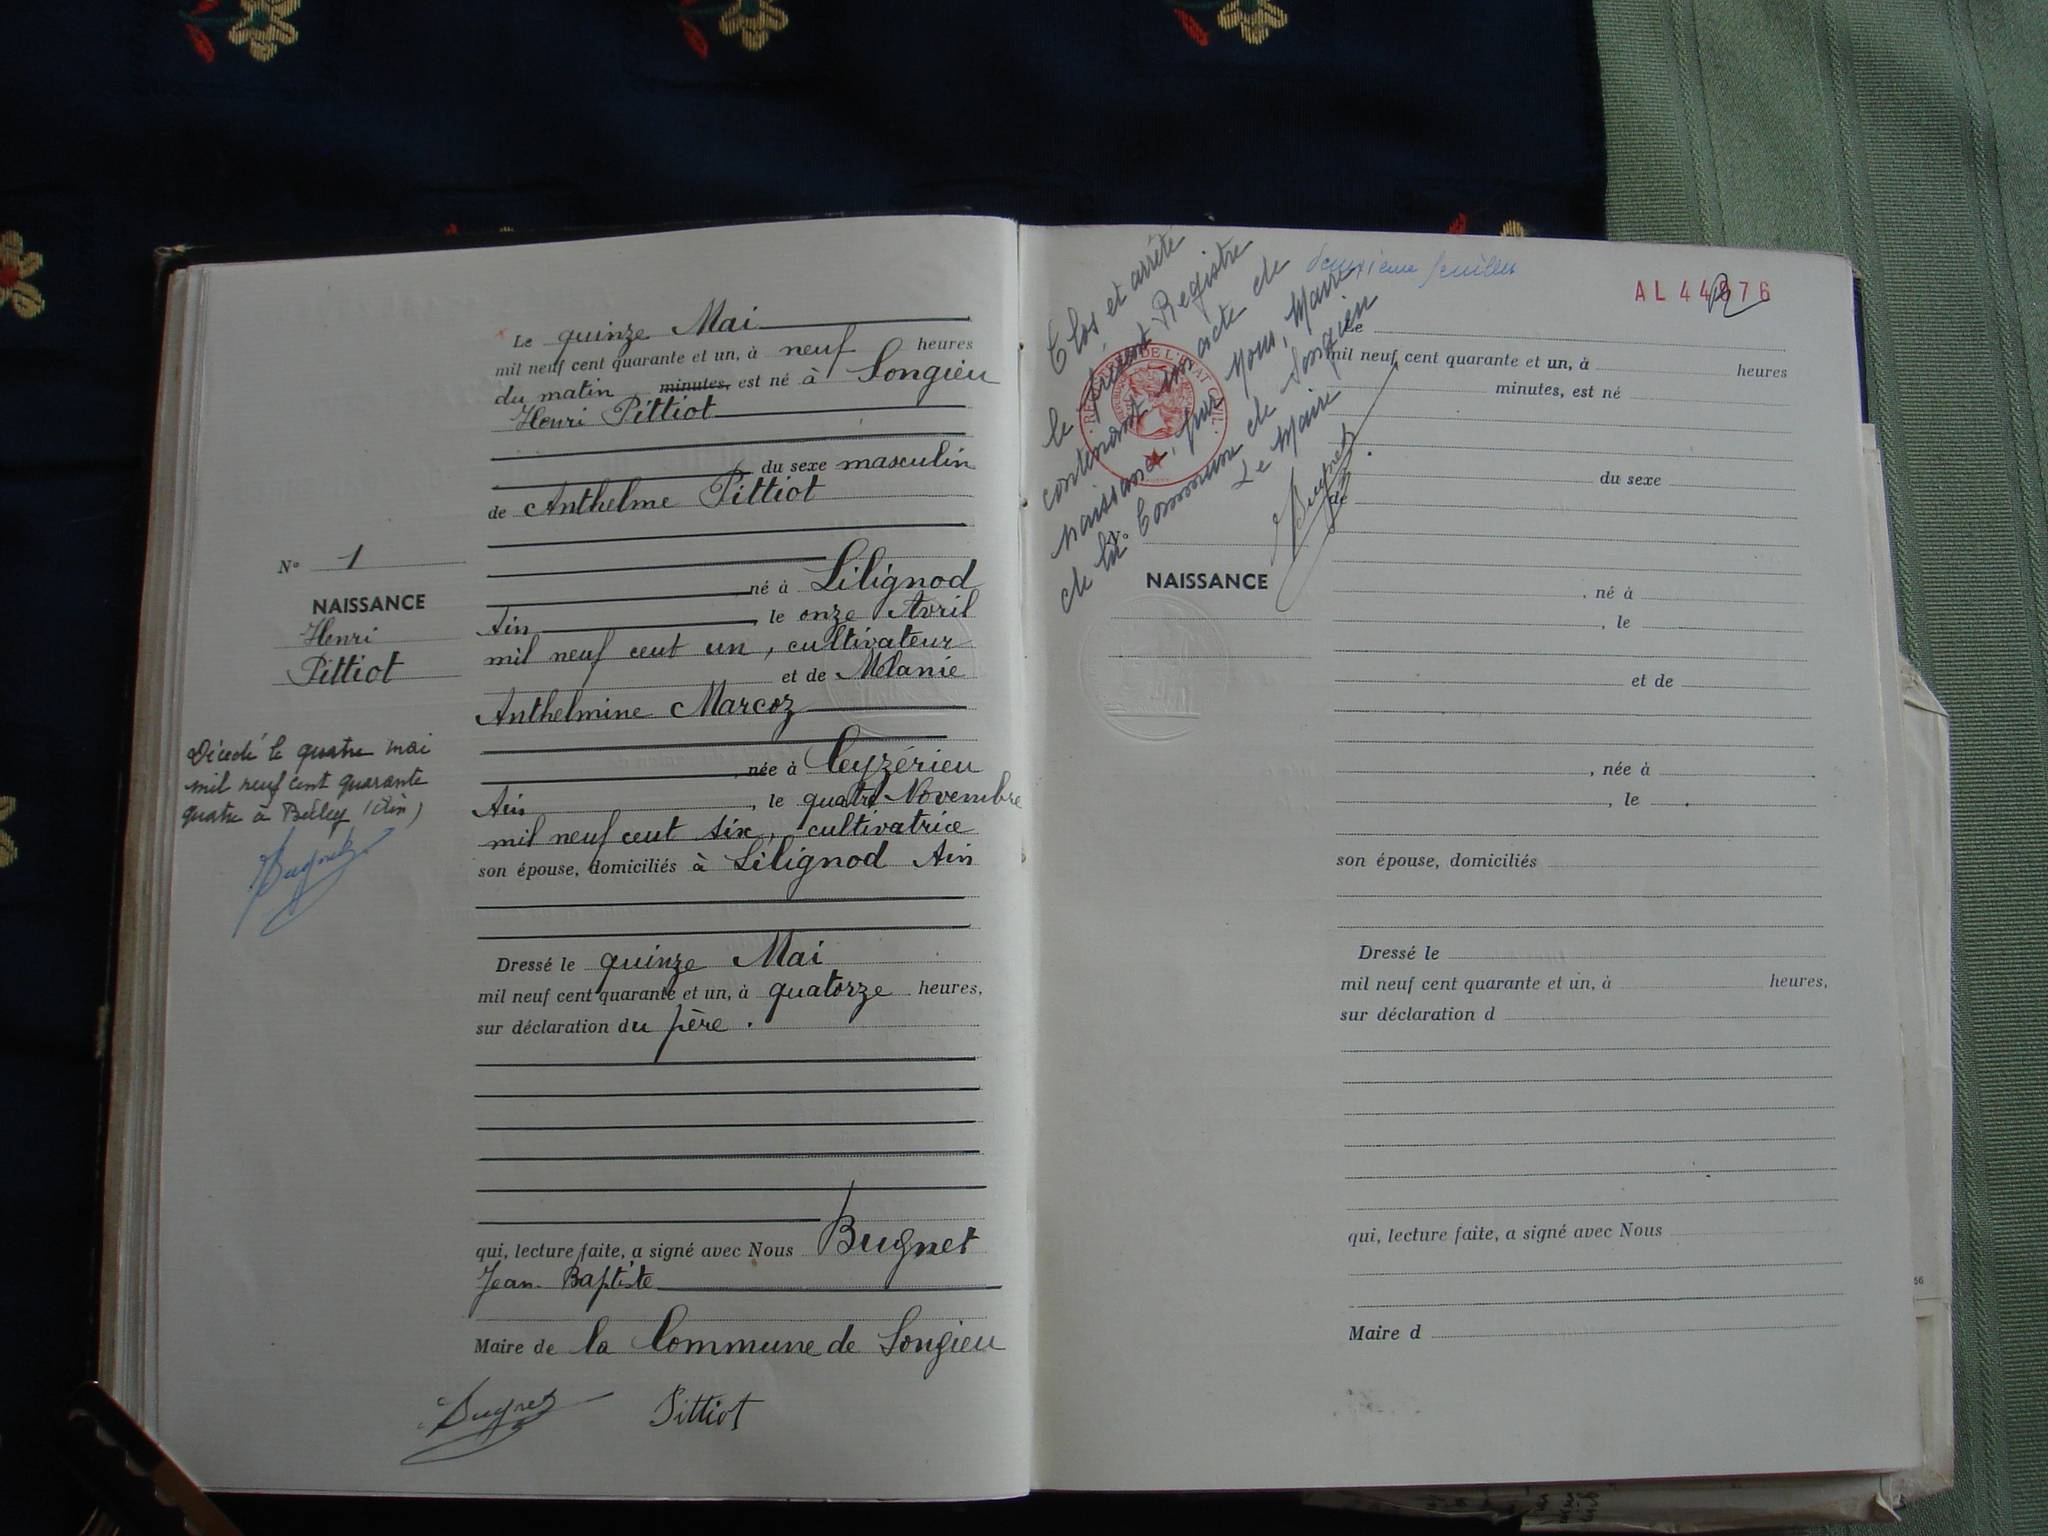 Le quinze Mai
mil neuf cent quarante et un, à neuf heures
du matin minutes, est né à Songieu
Henri Pittiot
du sexe masculin
de Anthelme Pittiot
né à Lilignod
Ain, le onze Avril
mil neuf cent un, cultivateur
et de Mélanie
Anthelmine Marcoz
, née à Ceyzérieu
Ain, le quatre Novembre
mil neuf cent six, cultivatrice
son épouse, domiciliés à Lilignod Ain
Dressé le quinze Mai
mil neuf cent quarante et un, à quatorze heures,
sur déclaration du père.
qui, lecture faite, a signé avec Nous Bugnet
Jean-Baptiste
Maire de la Commune de Songieu
Bugnet Pittiot
N° 1
NAISSANCE
Henri
Pittiot
Décédé le quatre mai
mil neuf cent quarante
quatre à Belley (Ain)
Bugnet
Clos et arrêté
le présent Registre
contenant un acte de
naissance, par Nous, Maire
de la Commune de Songieu
Le Maire
Bugnet
deuxième feuillet
DE L'ETAT CIVIL
N°
NAISSANCE
Le
mil neuf cent quarante et un, à heures
minutes, est né
du sexe
de
, né à
, le
et de
, née à
, le
son épouse, domiciliés
Dressé le
mil neuf cent quarante et un, à heures,
sur déclaration d
qui, lecture faite, a signé avec Nous
Maire d